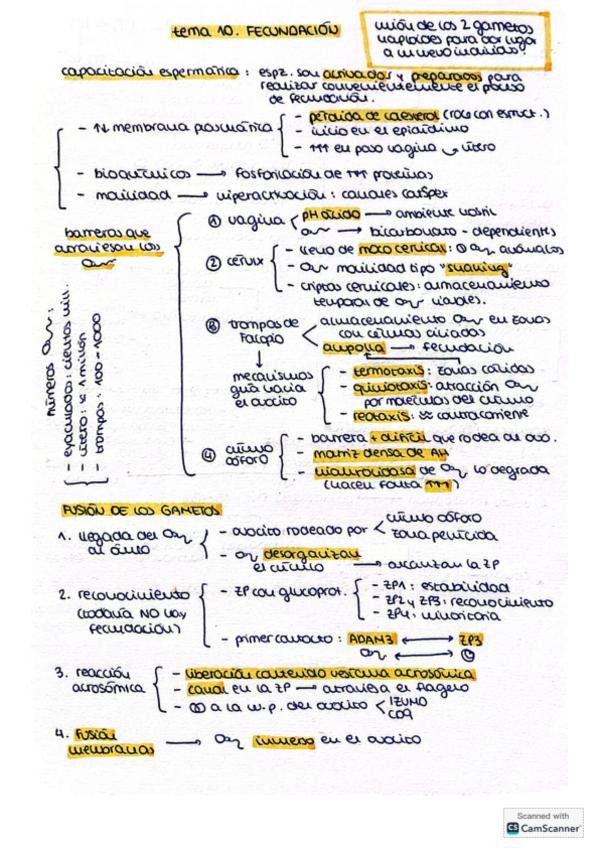 tema 10. FECUNDACIÓN
unión de los 2 gametos
haploides para dar lugar
a un nuevo individuo.
capacitación espermática : espz. son activados y preparados para
realizar convenientemente el proceso
de fecundación.
- ↑↓ membrana plasmática
- pérdida de colesterol (roce con estruct.)
- inicio en el epidídimo
- ↑↑↑ en paso vagina → útero
- bioquímicos → fosforilación de ↑↑↑ proteínas
- motilidad → hiperactivación : canales catSper
barreras que
atraviesan los
① vagina
pH ácido → ambiente hostil
→ bicarbonato - dependientes
② cérvix
- lleno de moco cervical : anómalos
- motilidad tipo "
- criptas cervicales : almacenamiento
temporal de viables.
③ trompas de
Falopio
almacenamiento en zonas
con células ciliadas
ampolla → fecundación
mecanismos
guía hacia
el ovocito
- termotaxis : zonas cálidas
- quimiotaxis : atracción
por moléculas del cúmulo
- reotaxis : contracorriente
④ cúmulo
oóforo
- barrera + difícil que rodea al ovo.
- matriz densa de AH
- hialuronidasa de lo degrada
(hacen falta ↑↑↑)
números :
- eyaculado : cientos mill.
- útero : ≈ 1 millón
- trompas : 100 - 1000
FUSIÓN DE LOS GAMETOS
1. llegada del
al cúmulo
- ovocito rodeado por
cúmulo oóforo
zona pelúcida
- desorganizan
el cúmulo → alcanzan la ZP
2. reconocimiento
(todavía NO hay
fecundación)
- ZP con glucoprot.
- ZP1 : estabilidad
- ZP2 y ZP3 : reconocimiento
- ZP4 : minoritaria
- primer contacto : ADAM3 ↔ ZP3
3. reacción
acrosómica
- liberación contenido vesícula acrosómica
- canal en la ZP → atraviesa el flagelo
- a la m.p. del ovocito
IZUMO
CD9
4. Fusión
membranas → inmerso en el ovocito
Scanned with
CS CamScanner